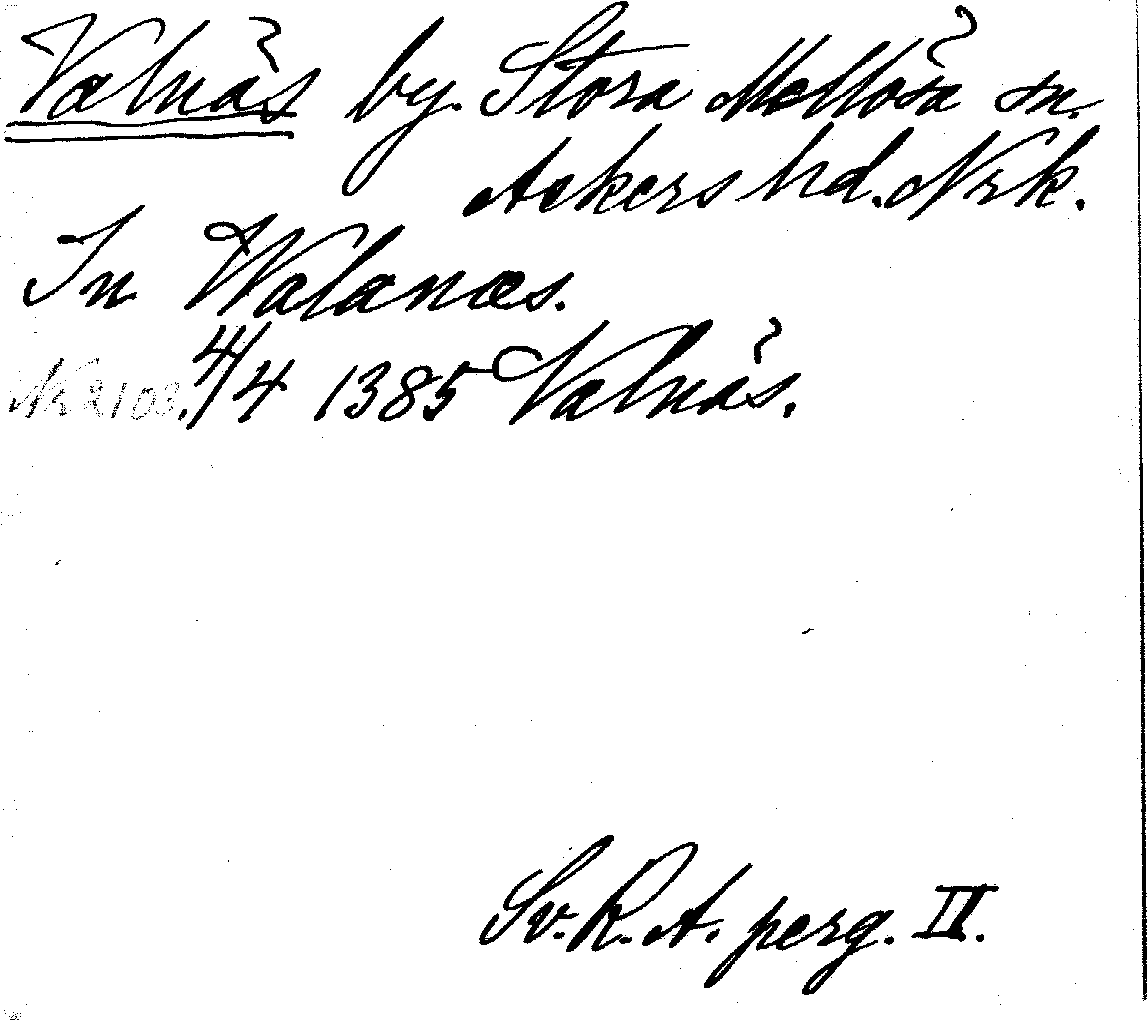 Valnäs by. Stora Mellösa sn.
Askers hd. Nrk.
In Walanæs.
Nr 2103. 4/4 1385 Valnäs.
Sv. R. A. perg. II.